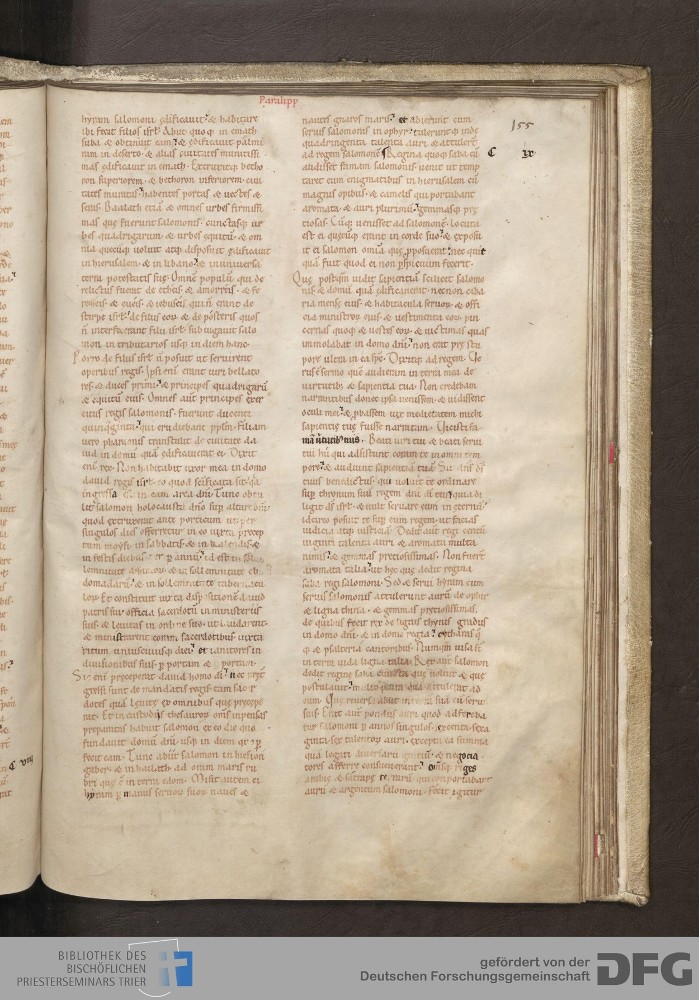 Paralipp
155
hyram salomoni ędificauit. & habitare
ibi fecit filios isrl. Abiit quoq; in emath
suba & obtinuit eam. & ędificauit palmi
ram in deserto. & alias ciuitates munitissi
mas ędificauit in emath. Extruxitq; betho
ron superiorem. & bethoron inferiorem. ciui
tates muratas habentes portas & uectes &
seras. Balaath etiā & omnes urbes firmissi
mas quę fuerunt salomonis. cunctasq; ur
bes quadrigarum & urbes equitū. & om
nia quęcūq; uoluit atq; disposuit ędificauit
in hierusalem & in libano. & in uniuersa
terra potestatis suę. Omnē populū qui de
relictus fuerat de etheis & amorreis. & fe
rezeis & eueis. & iebuseis qui n̄ erant de
stirpe isrl. de filiis eoꝝ & de posteris quos
n̄ interfecerant filii isrl. subiugauit salo
mon in tributarios usq; in diem hanc.
Porro de filiis isrl n̄ posuit ut seruirent
operibus regis. Ipsi eni erant uiri bellato
res. & duces primi. & principes quadrigarū
& equitū eius. Omnes aut principes exer
citus regis salomonis. fuerunt ducenti
quinquaginta. qui erudiebant pplm. Filiam
uero pharaonis transtulit de ciuitate da
uid in domū quā ędificauerat ei. Dixit
eni rex. Non habitabit uxor mea in domo
dauid regis isrl. eo quod scificata sit. qa
ingressa ē in eam arca dni. Tunc obtu
lit salomon holocausta dno sup altare dni
quod extruxerat ante porticum ut per
singulos dies offerretur in eo iuxta precep
tum moysi in sabbatis & in kalendis. &
in festis diebus ter p annū. id est in sol
lemnitate azimorū & in sollemnitate eb
domadarū. & in sollemnitate tabernacu
lorū. Et constituit iuxta dispositionē dauid
patris sui officia sacerdotū in ministeriis
suis. & leuitas in ordine suo. ut laudarent
& ministrarent coram sacerdotibus iuxta
ritum uniuscuiusq; diei. et ianitores in
diuisionibus suis p portam & portam.
Sic eni preceperat dauid homo di. nec prę
gressi sunt de mandatis regis tam sacer
dotes quā leuitę ex omnibus quę precepe
rat. Et in custodiis thesauroꝝ omīs inpensas
preparatas habuit salomon ex eo die quo
fundauit domū dni. usq; in diem qo p
fecit eam. Tunc abiit salomon in hiesion
gaber. & in hailath ad oram maris ru
bri quę ē in terra edom. Misit autem ei
hyram p manus seruoꝝ suoꝝ naues &
C VIII
nautas gnaros maris. et abierunt cum
seruis salomonis in ophyr. tuleruntq; inde
quadringenta talenta auri & attulerunt
ad regem salomonē. Regina quoq; saba cū
C IX
audisset famam salomonis uenit ut temp
taret eum enigmatibus in hierusalem cū
magnis opibus. & camelis qui portabant
aromata. & auri plurimū. gemmasq; prę
tiosas. Cūq; uenisset ad salomonē. locuta
est ei quęcūq; erant in corde suo. & exposu
it ei salomon omia quę pposuerat. nec quic
quā fuit quod ei non pspicuum fecerit.
Quę postquam uidit sapientiā scilicet salomo
nis & domū quā ędificauerat. necnon ciba
ria mensę eius & habitacula seruoꝝ. & offi
cia ministroꝝ eius. & uestimenta eoꝝ. pin
cernas quoq; & uestes eoꝝ. & uictimas quas
immolabat in domo dni. non erat pre stu
pore ultra in ea spc. Dixitq; ad regem. Ue
rus ē sermo quē audieram in terra mea de
uirtutibus & sapientia tua. Non credebam
narrantibus donec ipsa uenissem. & uidissent
oculi mei. & pbassem uix medietatem michi
sapientię tuę fuisse narratam. Uicisti fa
mā uirtutibus tuis. Beati uiri tui. & beati serui
tui hii qui adsistunt coram te in omni tem
pore. & audiunt sapientiā tuā. Sit dns ds
tuus benedictus. qui uoluit te ordinare
sup thronum suū regem dni di tui. quia di
ligit ds isrl. & uult seruare eum in ęternū.
idcirco posuit te sup eum regem. ut facias
iudicia atq; iusticiā. Dedit aut regi centū
uiginti talenta auri & aromata multa
nimis. & gemmas preciosissimas. Non fuerē
aromata talia. ut hęc quę dedit regina
saba regi salomoni. Sed & serui hyram cum
seruis salomonis attulerunt aurū de ophir
& ligna thina. & gemmas preciosissimas.
de quibus fecit rex de lignis thynis gradus
in domo dni. & in domo regia. cytharas q
q; & psalteria cantoribus. Nunquam uisa sū
in terra iuda ligna talia. Rex aut salomon
dedit reginę saba cuncta quę uoluit. & quę
postulauit. multo plura quā attulerat ad
eum. Quę reuersa abiit in terrā suā cū seruis
suis. Erat aut pondus auri quod adfereba
tur salomoni p annos singulos. sexcenta sexa
ginta sex talentoꝝ auri. excepta ea summa
quā legati diuersarū gentium. & negocia
tores afferre consueuerant. omīsq; reges
arabię & satrapę terrarū. qui comportabant
aurū & argentum salomoni. Fecit igitur
BIBLIOTHEK DES
BISCHÖFLICHEN
PRIESTERSEMINARS TRIER
gefördert von der
Deutschen Forschungsgemeinschaft
DFG